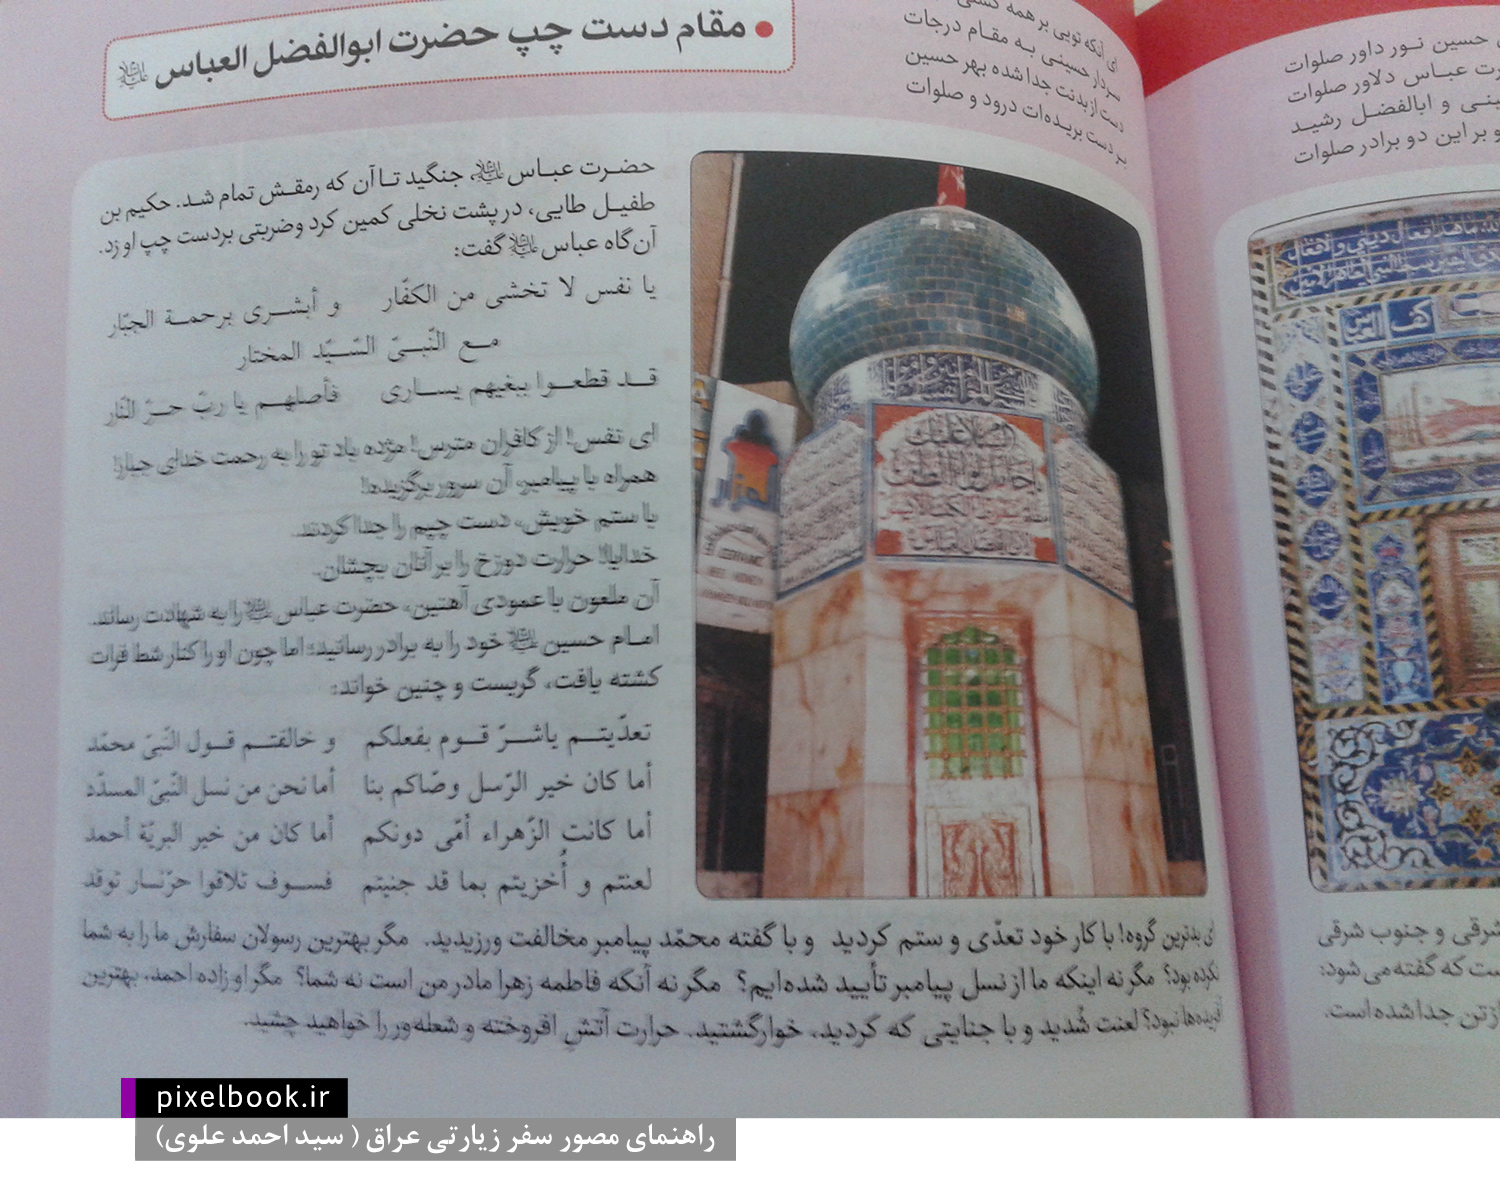 مقام دست چپ حضرت ابوالفضل العباس
ای آنکه تویی بر همه
سردار حسینی به مقام درجات
دست از بدنت جدا شده بهر حسین
بر دست بریده‌ات درود و صلوات
حضرت عباس جنگید تا آن که رمقش تمام شد. حکیم بن
طفیل طایی، در پشت نخلی کمین کرد و ضربتی بر دست چپ او زد.
آن‌گاه عباس گفت:
یا نفس لا تخشی من الکفّار و أبشری برحمة الجبّار
مع النّبیّ السّیّد المختار
قد قطعوا ببغیهم یساری فأصلهم یا ربّ حرّ النّار
ای نفس! از کافران مترس! مژده باد تو را به رحمت خدای جبار!
همراه با پیامبر، آن سرور برگزیده!
با ستم خویش، دست چپم را جدا کردند.
خدایا! حرارت دوزخ را بر آنان بچشان.
آن ملعون با عمودی آهنین، حضرت عباس را به شهادت رساند.
امام حسین خود را به برادر رسانید؛ اما چون او را کنار شط فرات
کشته یافت، گریست و چنین خواند:
تعدّیتم یاشرّ قوم بفعلکم و خالفتم قول النّبیّ محمّد
أما کان خیر الرّسل وصّاکم بنا أما نحن من نسل النّبیّ المسدّد
أما کانت الزّهراء أمّی دونکم أما کان من خیر البریّة أحمد
لعنتم و أُخزیتم بما قد جنیتم فسوف تلاقوا حرّنار توقد
ای بدترین گروه! با کار خود تعدّی و ستم کردید و با گفته محمّد پیامبر مخالفت ورزیدید. مگر بهترین رسولان سفارش ما را به شما
نکرده بود؟ مگر نه اینکه ما از نسل پیامبر تأیید شده‌ایم؟ مگر نه آنکه فاطمه زهرا مادر من است نه شما؟ مگر او زاده احمد، بهترین
آفریده‌ها نبود؟ لعنت شُدید و با جنایتی که کردید، خوار گشتید. حرارت آتشِ افروخته و شعله‌ور را خواهید چشید.
حسین نور داور صلوات
عباس دلاور صلوات
و ابالفضل رشید
و بر این دو برادر صلوات
شرقی و جنوب شرقی
که گفته می‌شود:
از تن جدا شده است.
pixelbook.ir
راهنمای مصور سفر زیارتی عراق ( سید احمد علوی)